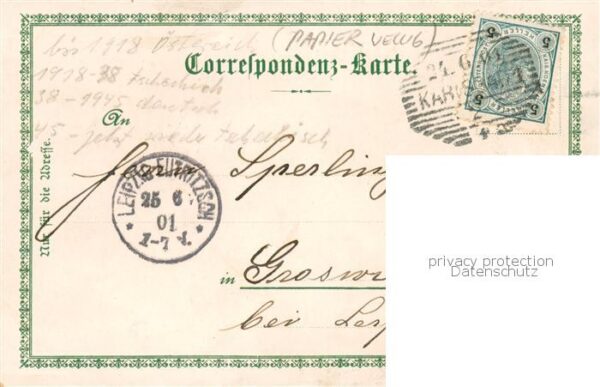 bis 1918 Österreich (PAPIER VELLG)
Correspondenz-Karte.
1918-38 Tschechisch
38-1945 deutsch
45 - jetzt wieder Tschechisch
An
Herrn Sperling
Nur für die Adresse.
in Groswi
bei Leip
LEIPZIG-EUTRITZSCH
25 6
01
1-7 V.
24. 6. 01
KARLS
5 5
5 5
HELLER
privacy protection
Datenschutz